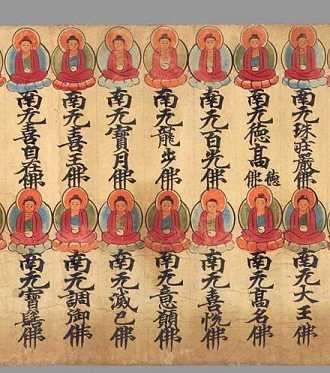 南无珠莊嚴佛
南无德髙德佛
南无百光佛
南无龍步佛
南无寶月佛
南无喜王佛
南无喜自在佛
南无大王佛
南无髙名佛
南无喜悅佛
南无意願佛
南无滅已佛
南无調御佛
南无寶髻佛